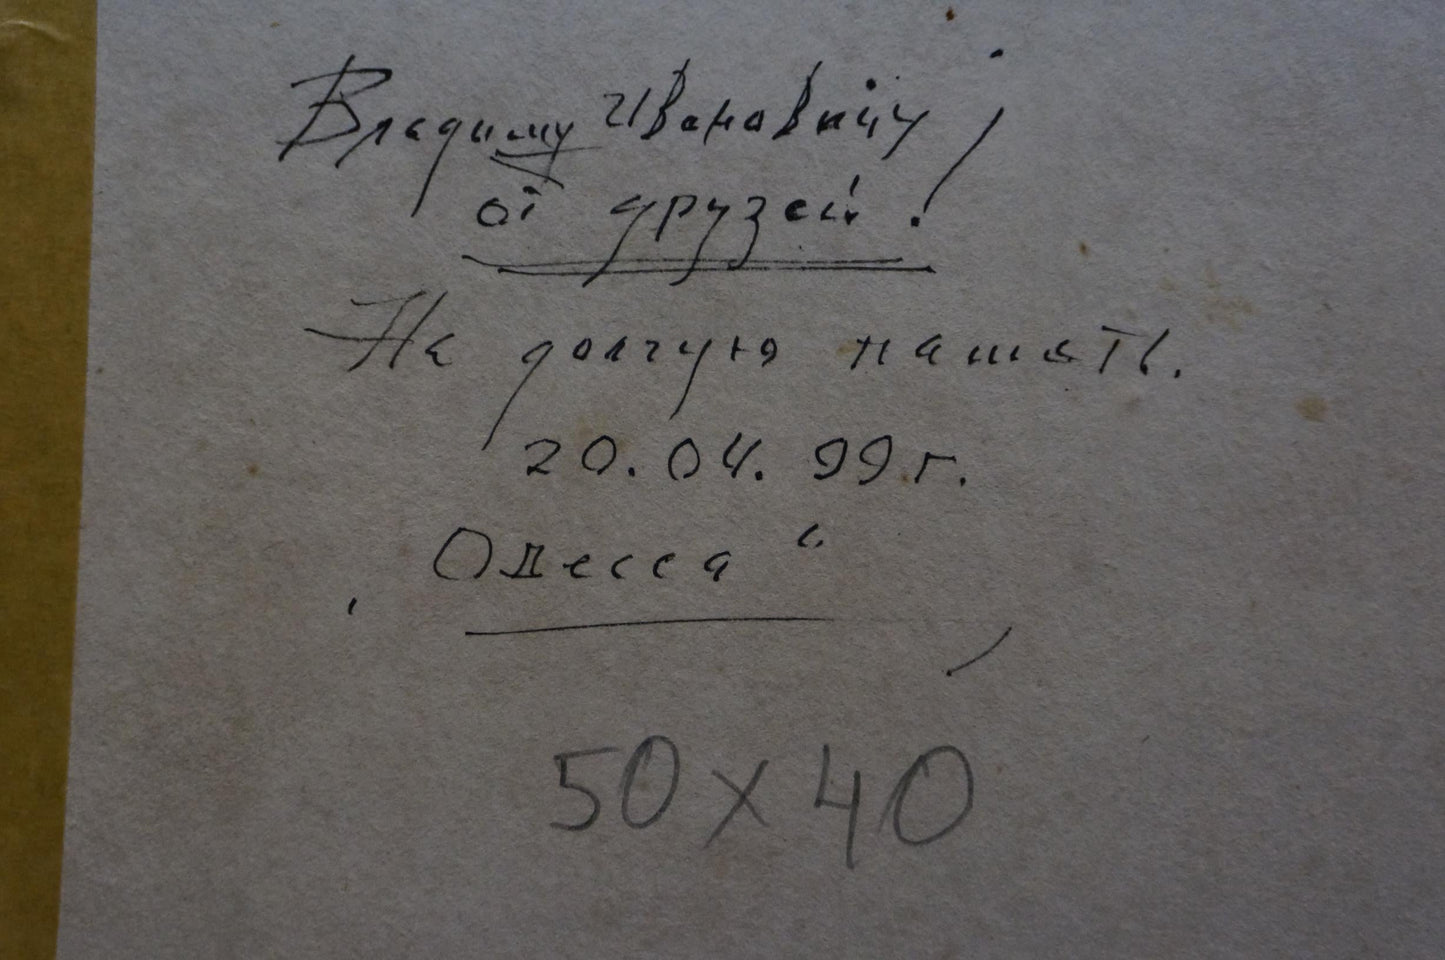 Владиму Ивановичу
от друзей!
На долгую память.
20.04.99г.
Одесса"
50х40